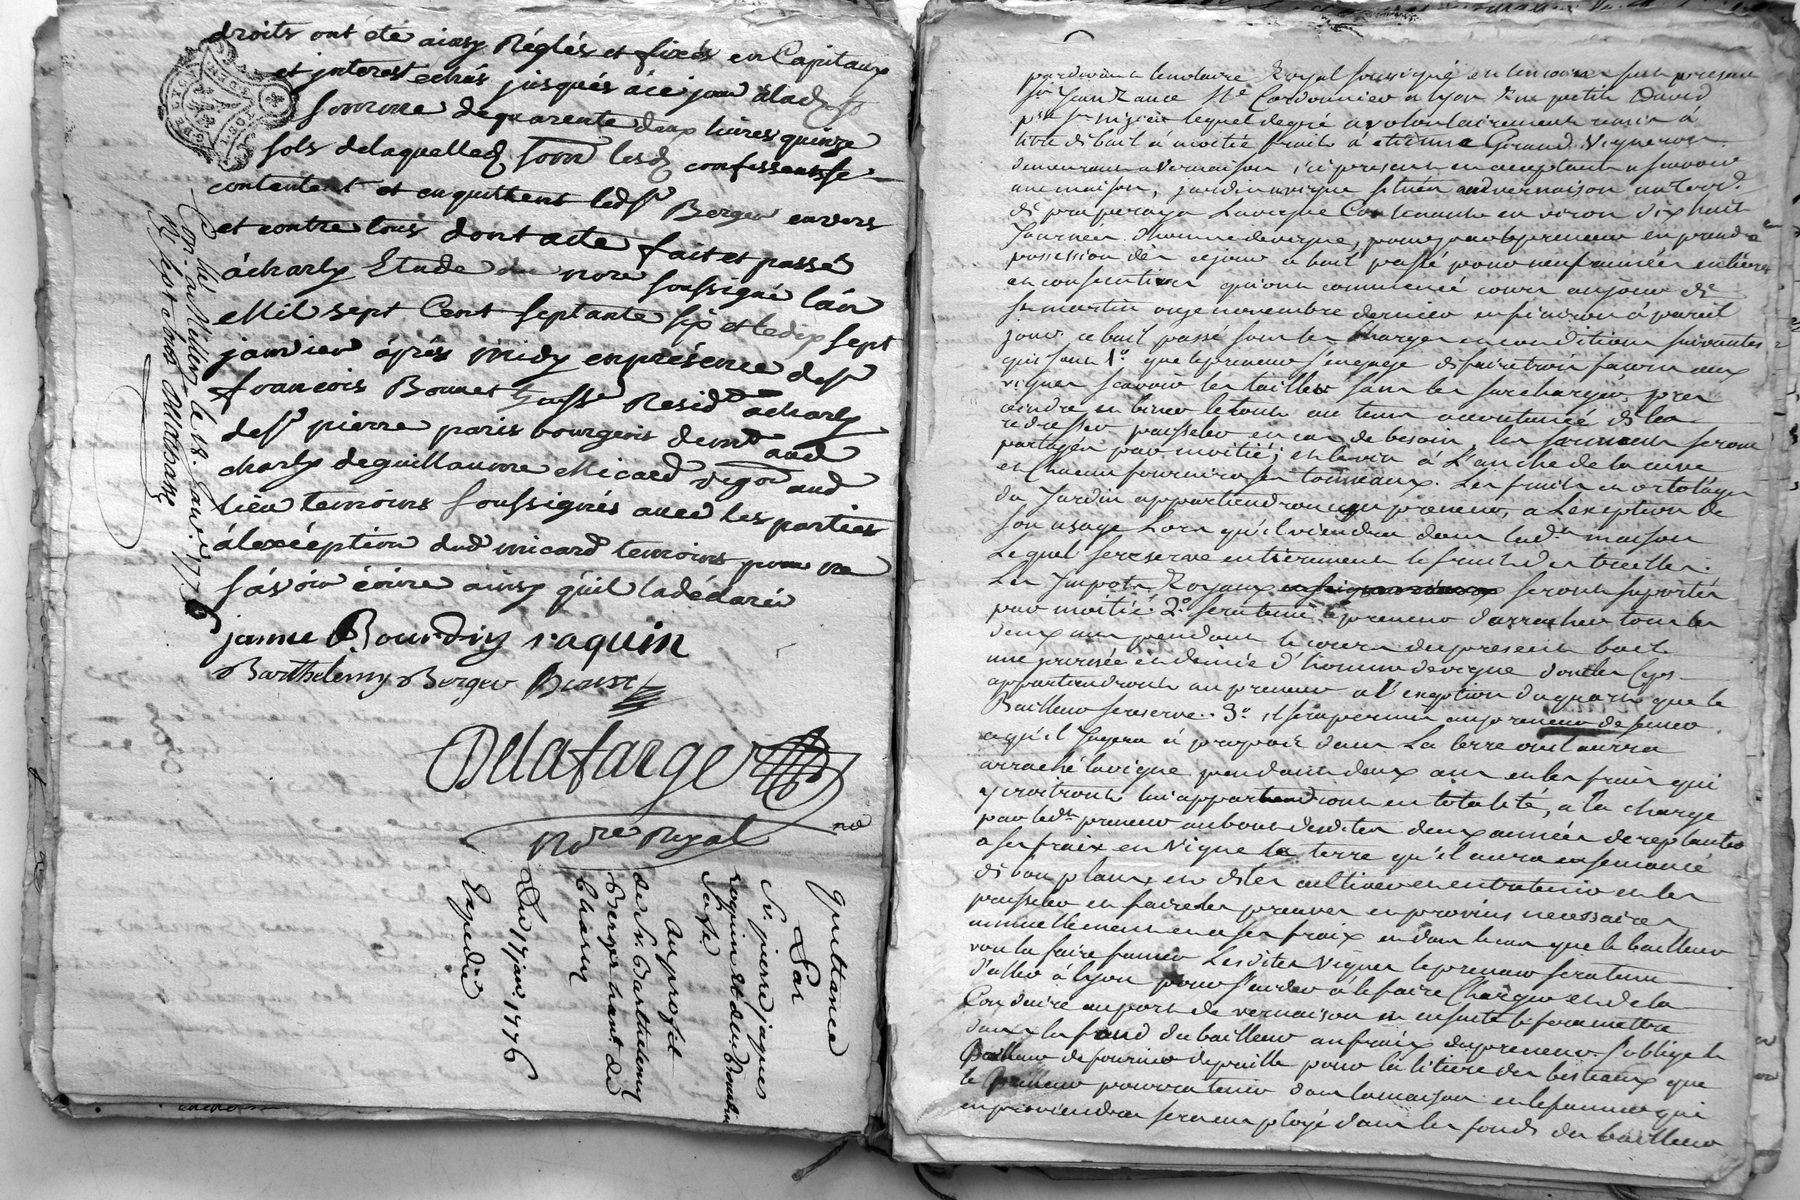 droits ont été ainsy Réglés et fixés en Capitaux
et interest echus jusqués à ce jour à lad
somme de quarente deux livres quinze
sols de laquelled somme lesd confessants se
contentent et en quittent led Sr Berger envers
et contre tous dont acte fait et passé
à charly Etude du nore soussigné l'an
Mil sept Cent septante six et le dix sept
janvier après midy en présence de Sr
françois Bonnet Resid à charly
de Sr pierre paris bourgeois demt aud
charly de guillaume Micard vigon aud
lieu temoins soussignés avec les parties
à l'exception dud micard temoins pour ne
sçavoir écrire ainsy qu'il la déclaré
janne Bourdin raquin
Barthelemy Berger
Delafarge
nore royal
Con lé à Millery le 18. janv. 1776
Quittance
Par
Sr. pierre jaques
raquin et
au profit
de Sr. Barthelemy
Berger
Charly
Du 17 janv. 1776
Expedié
pardevant le notaire Royal soussigné
Sr Jean Me Cordonnier à lyon rue petit David
lequel de gré a volontairement remis à
titre de bail à moitié fruits à etienne Giraud Vigneron
demeurant à Vernaison ici présent et acceptant a scavoir
une maison, jardin et vigne situés aud vernaison
La vigne Contenante environ dix huit
Journées d'homme de vigne, pour par le preneur en prendre
possession dès ce jour ce bail passé pour neuf années entières
et consecutives qui ont commencé cour au jour de
st martin onze novembre dernier et finiron à pareil
jour, ce bail passé sous les charges et conditions suivantes
qui sont 1o. que le preneur s'engage de faire trois façons aux
vignes scavoir les tailler sans les surcharger,
et biner le tout au tems accoutumé de les
redresser paisseler en cas de besoin, les sarments seront
partagés par moitié; et le vin à L'anche de la cuve
et Chacun fournira ses tonneaux. Les fruits et ortolages
du Jardin appartiendront au preneur, a L'exeption de
son usage Lors qu'il viendra dans lade maison
Lequel se reserve entierement le fruit des treilles.
Les Impots Royaux seront suportés
par moitié. 2o. sera tenu le preneur d'arracher tous les
deux ans pendant le cours du present bail
une journée et demie d'homme de vigne dont les Ceps
appartiendront au preneur a l'exeption du quart que le
Bailleur se reserve. 3o. il sera permis au preneur de semer
ce qu'il Jugera à propos dans La terre ou il aura
arraché la vigne pendant deux ans et les fruits qui
y croitront lui appartiendront en totalité, a la charge
par led preneur au bout desdites deux années de replanter
a ses fraix en Vigne la terre qu'il aura ensemencé
de bon plant, et de les cultiver et entretenir et les
paisseler et faire les preuves et provins necessaires
annuellement et a ses fraix et dans le cas que le bailleur
voulu faire fumer Lesdites Vignes le preneur sera tenu
d'aller à lyon pour s'aider à le faire Charger et de le
Conduire au port de vernaison et ensuite le fera mettre
dans les fond du bailleur aux fraix du preneur. s'oblige le
Bailleur de fournir de paille pour la litiere des bestiaux que
le Preneur pourra tenir dans la maison et le fumier qui
en proviendra sera employé dans les fonds du bailleur